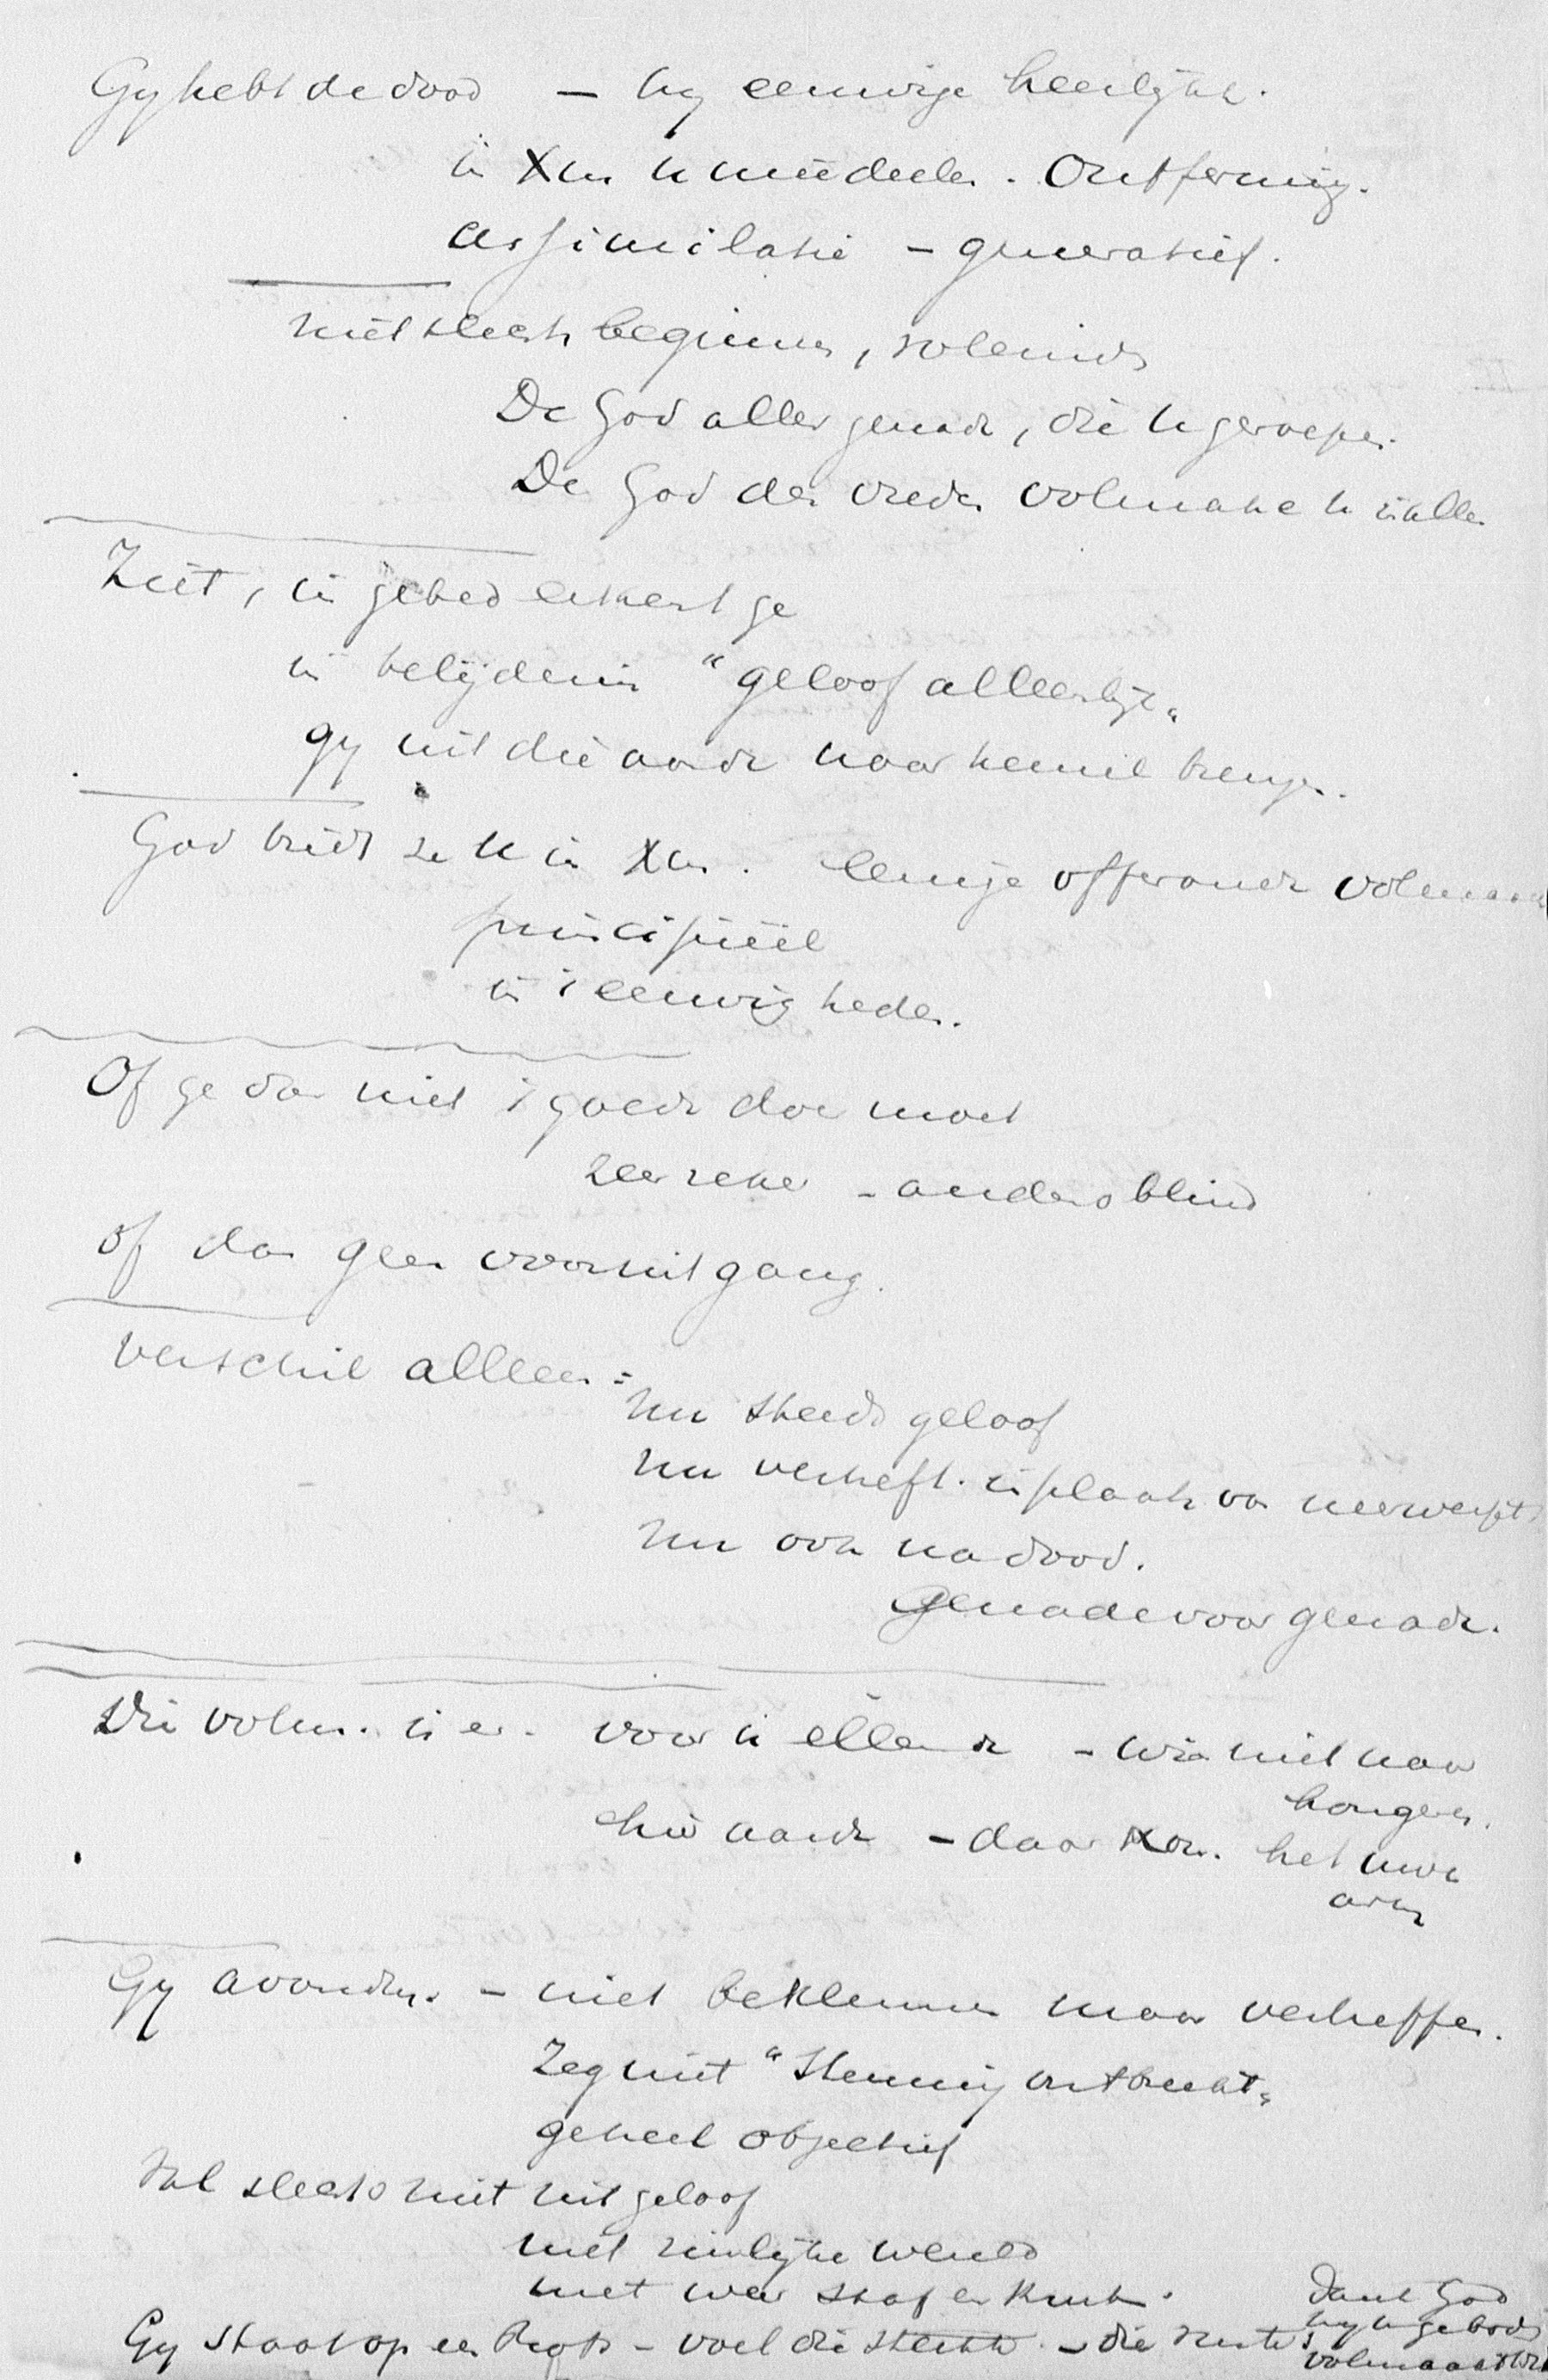 Gy hebt de dood – hy eeuwige heerlijkh.
in Xus u meedeelen. Ontferming.
assimilatie – generatief.
niet slechts beginnen, voleinden
De God aller genade, die u geroepen.
De God des vredes volmake u in alle
Ziet, in gebed erkent ge
in belijdenis "geloof alleenlijk"
gy uit die aarde naar hemel brengen.
God biedt ze u in Xus. eenige offerande volmaakt
principiëel
in 't eeuwigheden.
Of ge dan niet 't goede doen moet
zeer zeker – anders blind
of dan geen vooruitgang.
Verschil alleen:
nu steeds geloof
nu verheft. in plaats van neerwerpt
nu ook na dood.
Genade voor genade.
Die volm. is er. voor u ellende – wie niet naar
hongeren.
hier aarde – daar Xus. het uwe
arm
Gy avondm. – niet beklemmen maar verheffen.
Zeg niet "Stemming ontbreekt"
geheel objectief
Zal slechts niet uit geloof
met zienlijke wereld
met weer staf en kruk.
Gy staat op een Rots – voel die slechts – die rust
Dankt God
hy u gebods
volmaaktheid